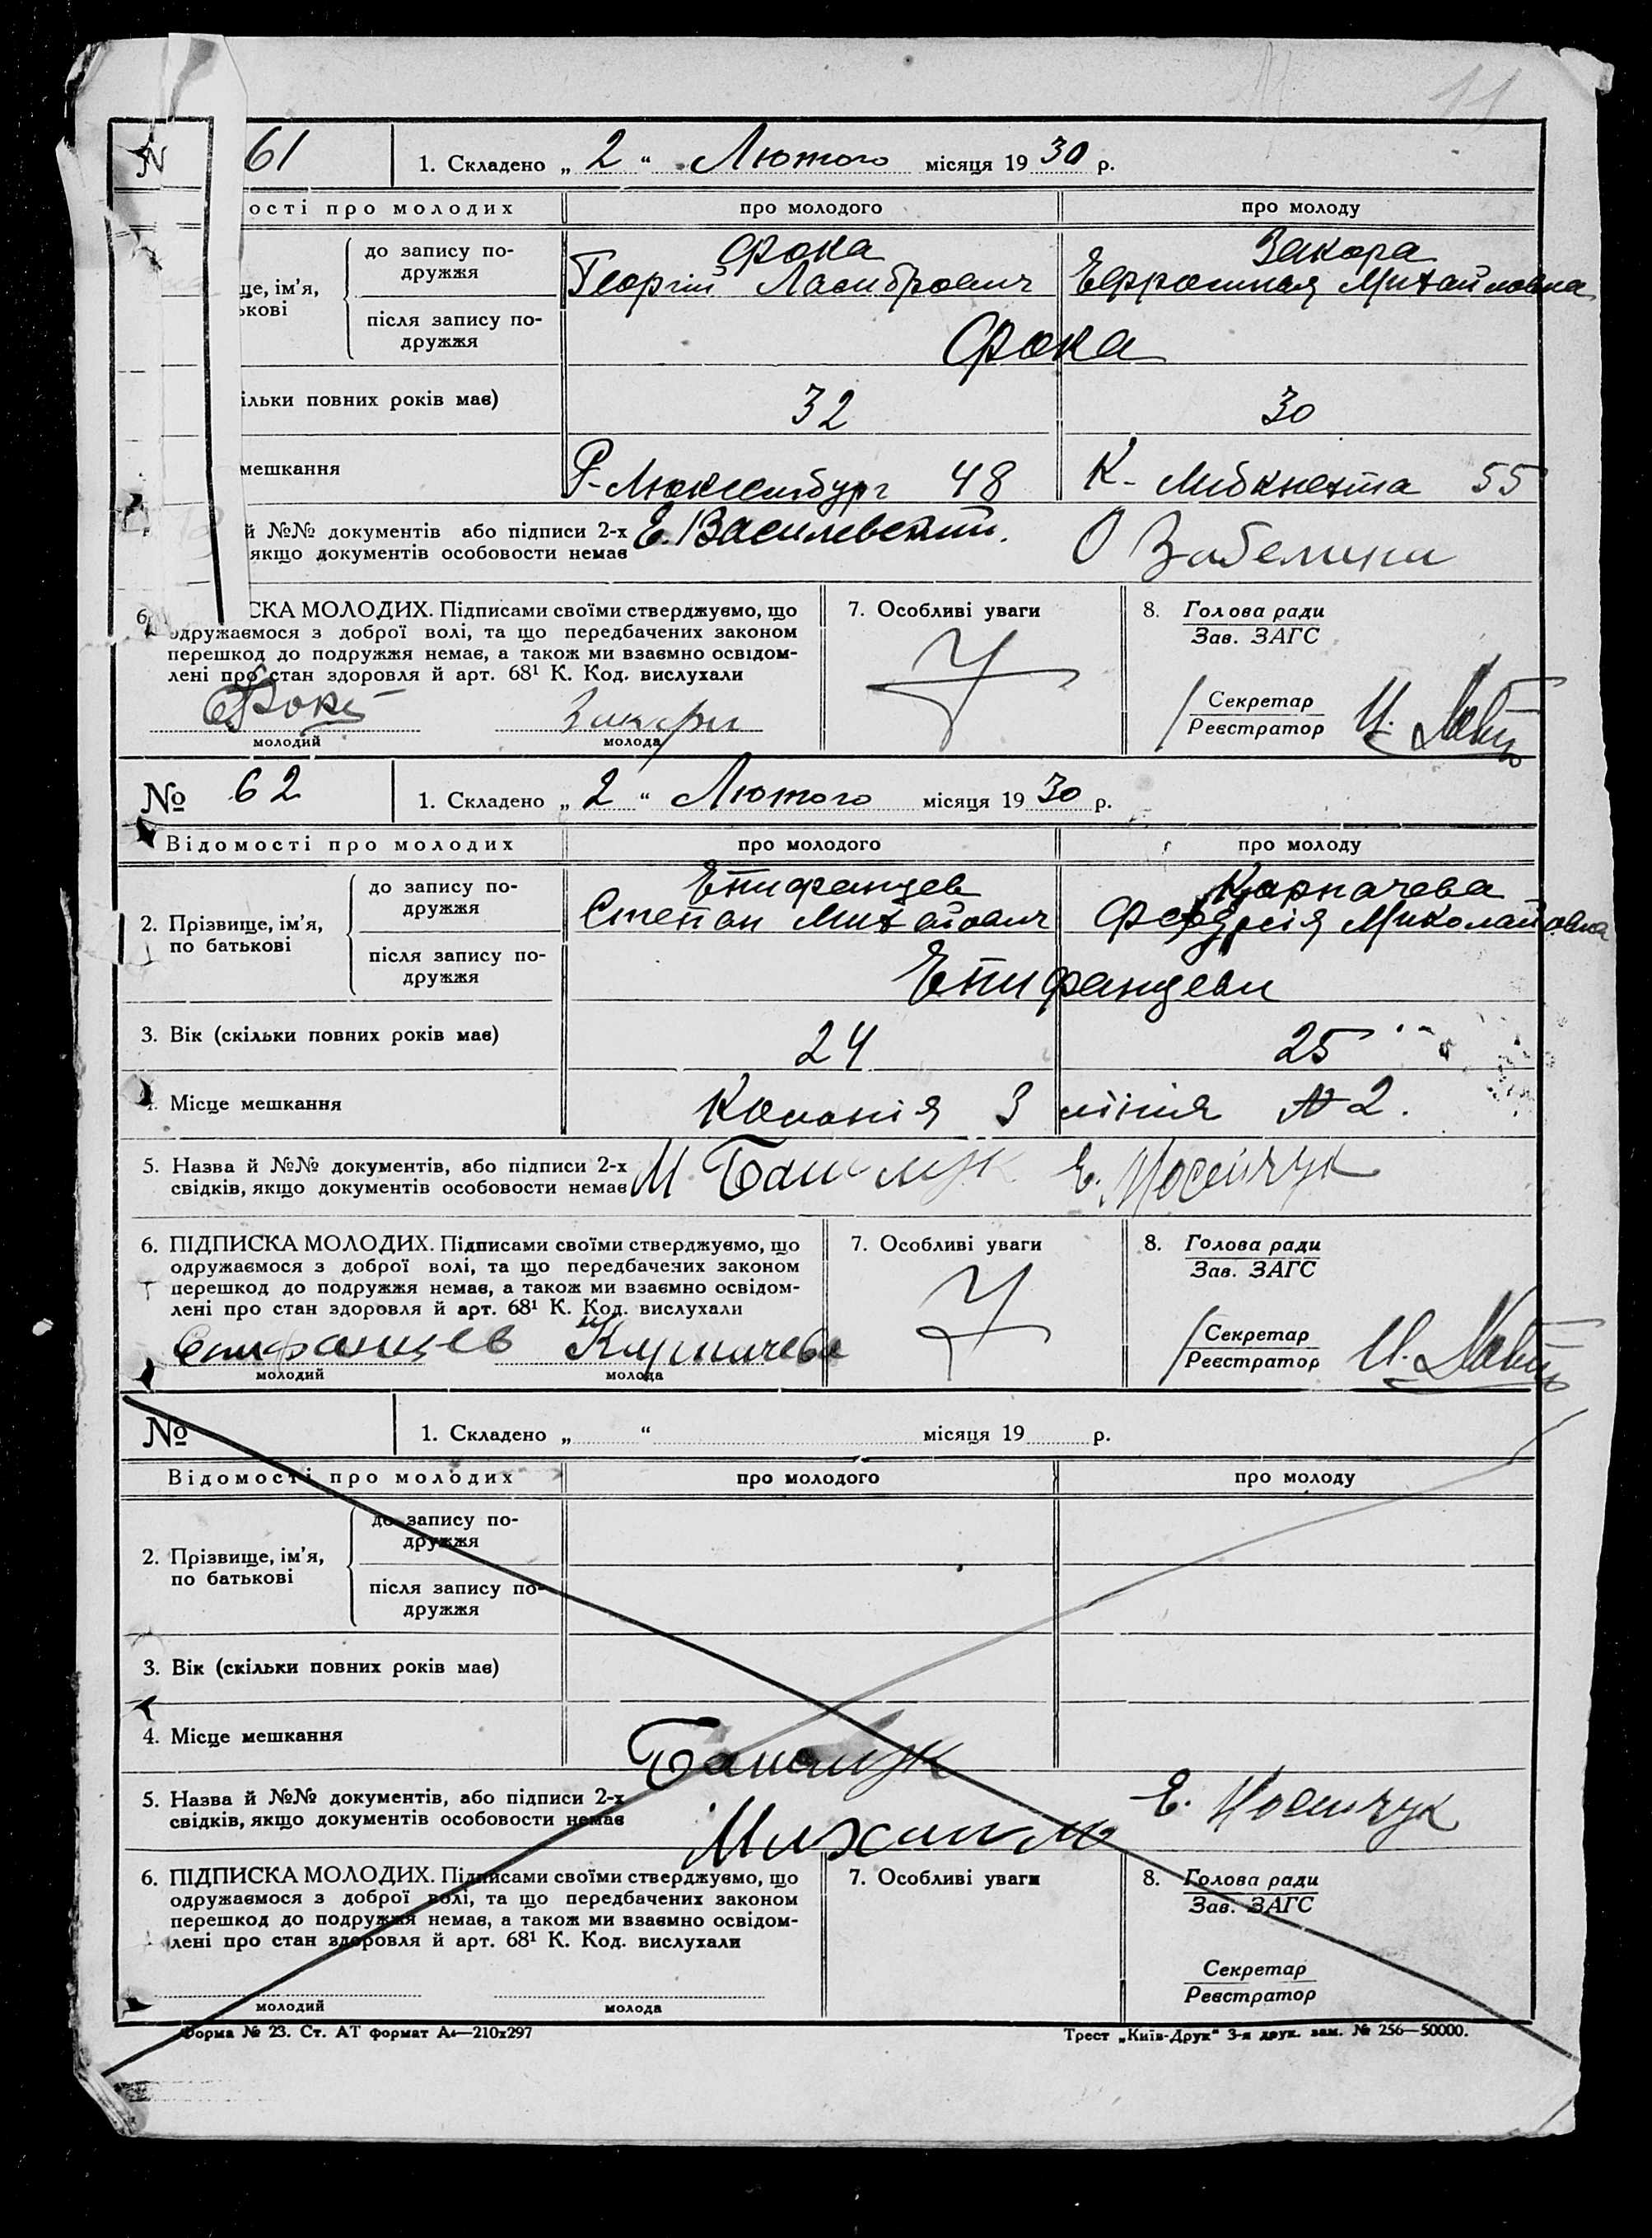 11
61
1. Складено „ 2 “ Лютого місяця 19 30 р.
ості про молодих
про молодого
про молоду
до запису по-
дружжя
Фока
Георгій
Закора
Михайловна
ще, ім’я,
ькові
після запису по-
дружжя
Фока
ільки повних років має)
32
30
мешкання
Р-Люксембург 48
К- Либкнехта 55
й №№ документів або підписи 2-х
якщо документів особовости немає
Е. Василевский.
О
6.
СКА МОЛОДИХ. Підписами своїми стверджуємо, що
одружаємося з доброї волі, та що передбачених законом
перешкод до подружжя немає, а також ми взаємно освідом-
лені про стан здоровля й арт. 68¹ К. Код. вислухали
молодий
молода
7. Особливі уваги
8. Голова ради
Зав. ЗАГС
Секретар
Реєстратор
№ 62
1. Складено „ 2 “ Лютого місяця 19 30 р.
Відомості про молодих
про молодого
про молоду
2. Прізвище, ім’я,
по батькові
до запису по-
дружжя
Епифанцев
Степан
Карпачева
Миколаивна
після запису по-
дружжя
Епифанцеви
3. Вік (скільки повних років має)
24
25
4. Місце мешкання
Колонія 3 лінія № 2.
5. Назва й №№ документів, або підписи 2-х
свідків, якщо документів особовости немає
М.
Е. Мосейчук
6. ПІДПИСКА МОЛОДИХ. Підписами своїми стверджуємо, що
одружаємося з доброї волі, та що передбачених законом
перешкод до подружжя немає, а також ми взаємно освідом-
лені про стан здоровля й арт. 68¹ К. Код. вислухали
Епифанцев
молодий
молода
7. Особливі уваги
8. Голова ради
Зав. ЗАГС
Секретар
Реєстратор
№
1. Складено „ “ місяця 19 р.
Відомості про молодих
про молодого
про молоду
2. Прізвище, ім’я,
по батькові
до запису по-
дружжя
після запису по-
дружжя
3. Вік (скільки повних років має)
4. Місце мешкання
5. Назва й №№ документів, або підписи 2-х
свідків, якщо документів особовости немає
Е. Мосейчук
6. ПІДПИСКА МОЛОДИХ. Підписами своїми стверджуємо, що
одружаємося з доброї волі, та що передбачених законом
перешкод до подружжя немає, а також ми взаємно освідом-
лені про стан здоровля й арт. 68¹ К. Код. вислухали
молодий
молода
7. Особливі уваги
8. Голова ради
Зав. ЗАГС
Секретар
Реєстратор
Форма № 23. Ст. АТ формат А₄—210х297
Трест „Київ-Друк“ 3-я друк. зам. № 256—50000.